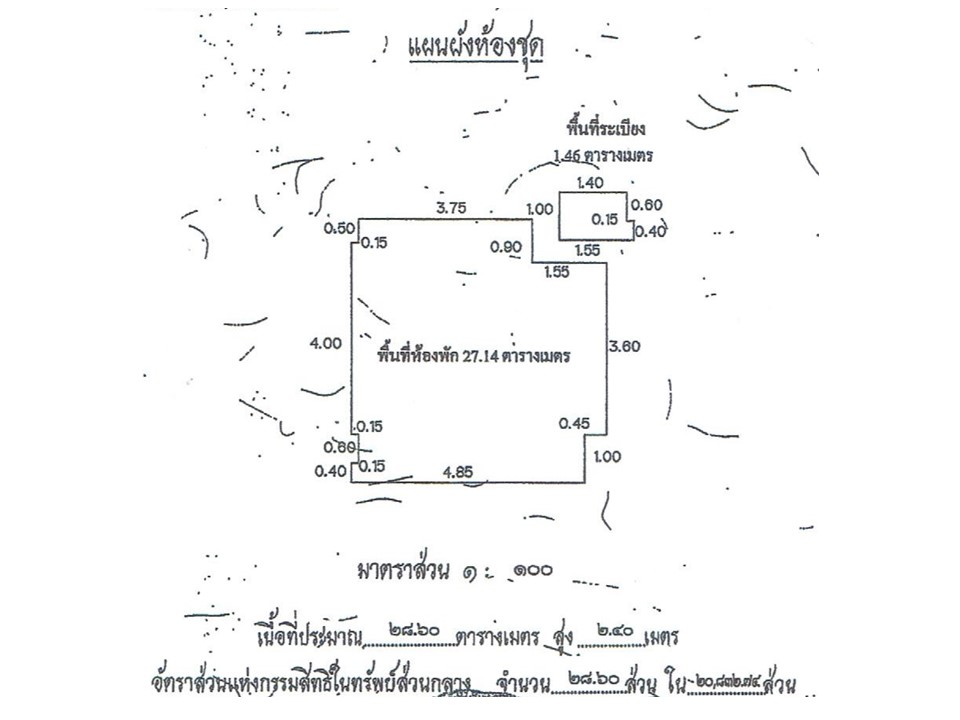 แผนผังห้องชุด
พื้นที่ระเบียง
1.46 ตารางเมตร
1.40
3.75
1.00
0.60
0.15
0.40
0.50
0.15
0.90
1.55
1.55
4.00
พื้นที่ห้องพัก 27.14 ตารางเมตร
3.60
0.15
0.45
0.60
0.40
0.15
4.85
1.00
มาตราส่วน ๑ : ๑๐๐
เนื้อที่ประมาณ ๒๘.๖๐ ตารางเมตร สูง ๒.๔๐ เมตร
อัตราส่วนแห่งกรรมสิทธิ์ในทรัพย์ส่วนกลาง จำนวน ๒๘.๖๐ ส่วน ใน ๒๐,๘๓๒.๗๔ ส่วน